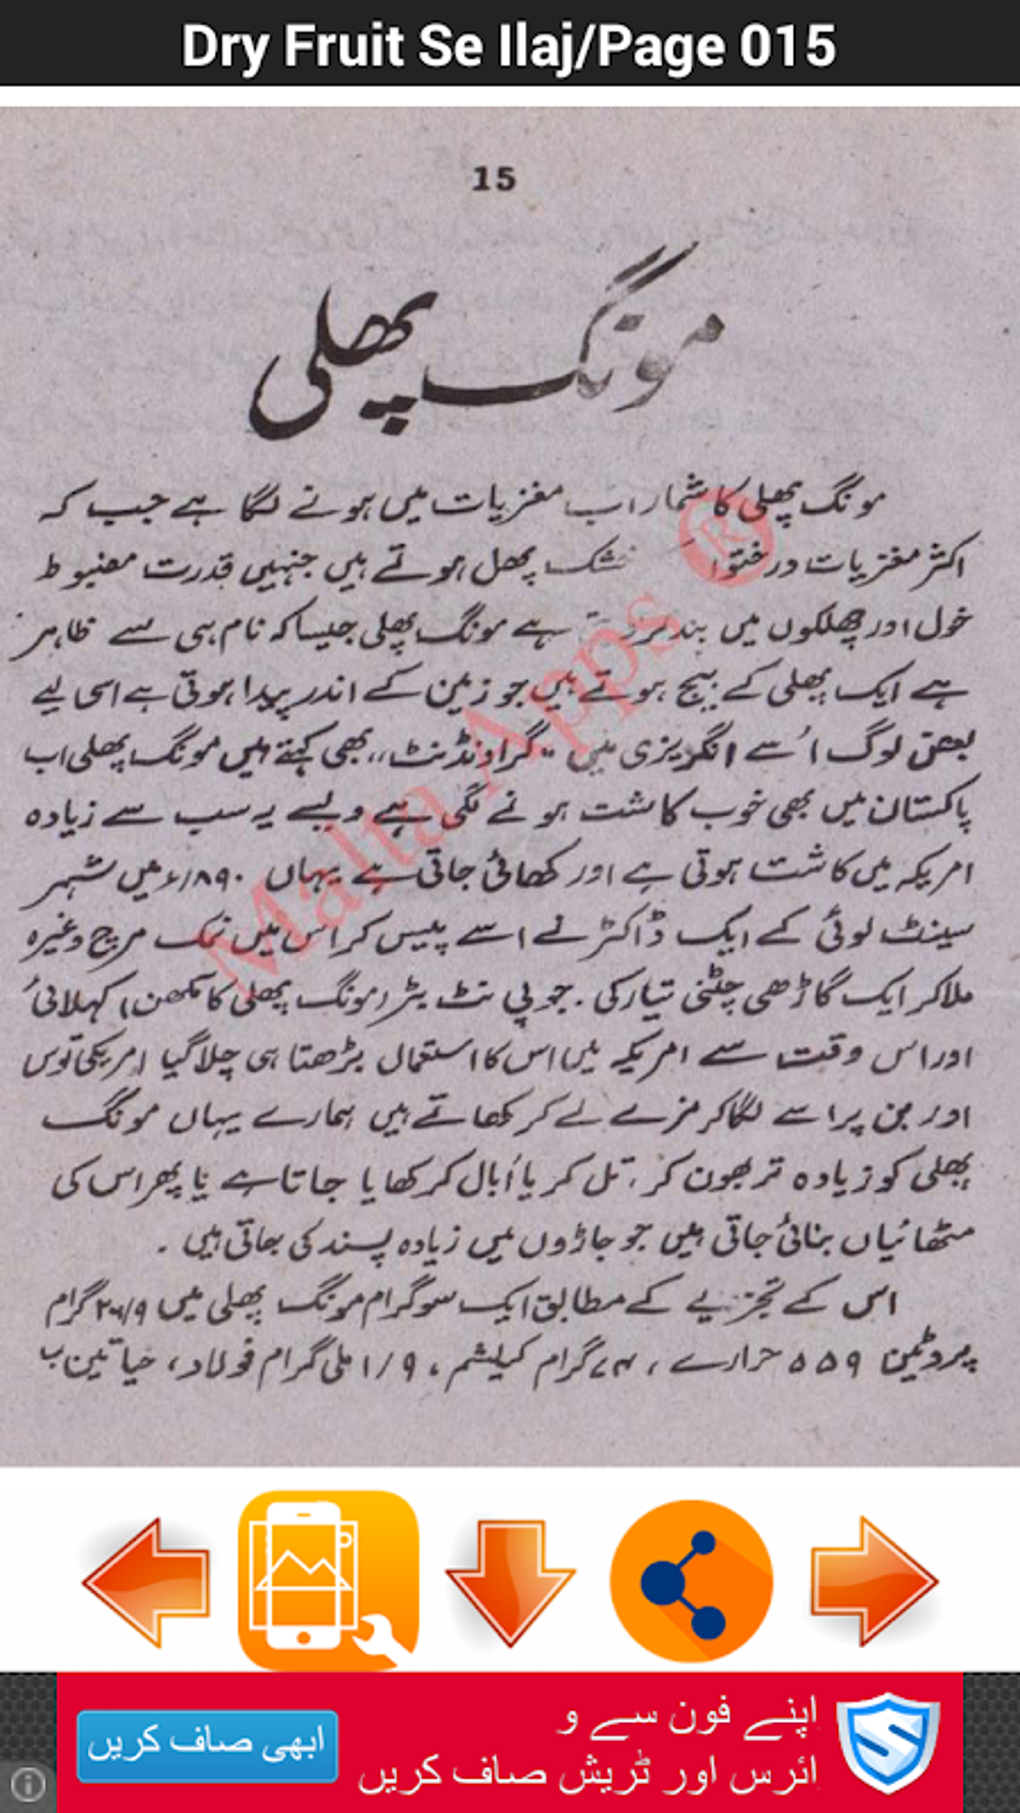 Dry Fruit Se Ilaj/Page 015
15
مونگ پھلی
مونگ پھلی کا شمار اب مغزیات میں ہونے لگا ہے جب کہ
اکثر مغزیات درختوں خشک پھل ہوتے ہیں جنہیں قدرت مضبوط
خول اور چھلکوں میں بند ہے مونگ پھلی جیسا کہ نام ہی سے ظاہر
ہے ایک پھلی کے بیج ہوتے ہیں جو زمین کے اندر پیدا ہوتی ہے اسی لیے
بعض لوگ اُسے انگریزی میں ”گراونڈنٹ،، بھی کہتے ہیں مونگ پھلی اب
پاکستان میں بھی خوب کاشت ہونے لگی ہے ویسے یہ سب سے زیادہ
امریکہ میں کاشت ہوتی ہے اور کھائی جاتی ہے یہاں ۱۸۹۰ء میں شہر
سینٹ لوئی کے ایک ڈاکٹر نے اسے پیس کر اس میں نمک مرچ وغیرہ
ملا کر ایک گاڑھی چٹنی تیار کی ۔ جو پی نٹ بٹر (مونگ پھلی کا مکھن) کہلائی
اور اس وقت سے امریکہ میں اس کا استعمال بڑھتا ہی چلا گیا امریکی توس
اور بن پر اسے لگا کر مزے لے کر کھاتے ہیں ہمارے یہاں مونگ
پھلی کو زیادہ تر بھون کر، تل کر یا اُبال کر کھایا جاتا ہے یا پھر اس کی
مٹھائیاں بنائی جاتی ہیں جو جاڑوں میں زیادہ پسند کی جاتی ہیں ۔
اس کے تجزیے کے مطابق ایک سو گرام مونگ پھلی میں گرام
پروٹین ۵۵۹ حرارے، گرام کیلشم، ۱/۹ ملی گرام فولاد، حیاتین ب
Malta Apps ®
اپنے فون سے و
ائرس اور ٹریش صاف کریں
ابھی صاف کریں